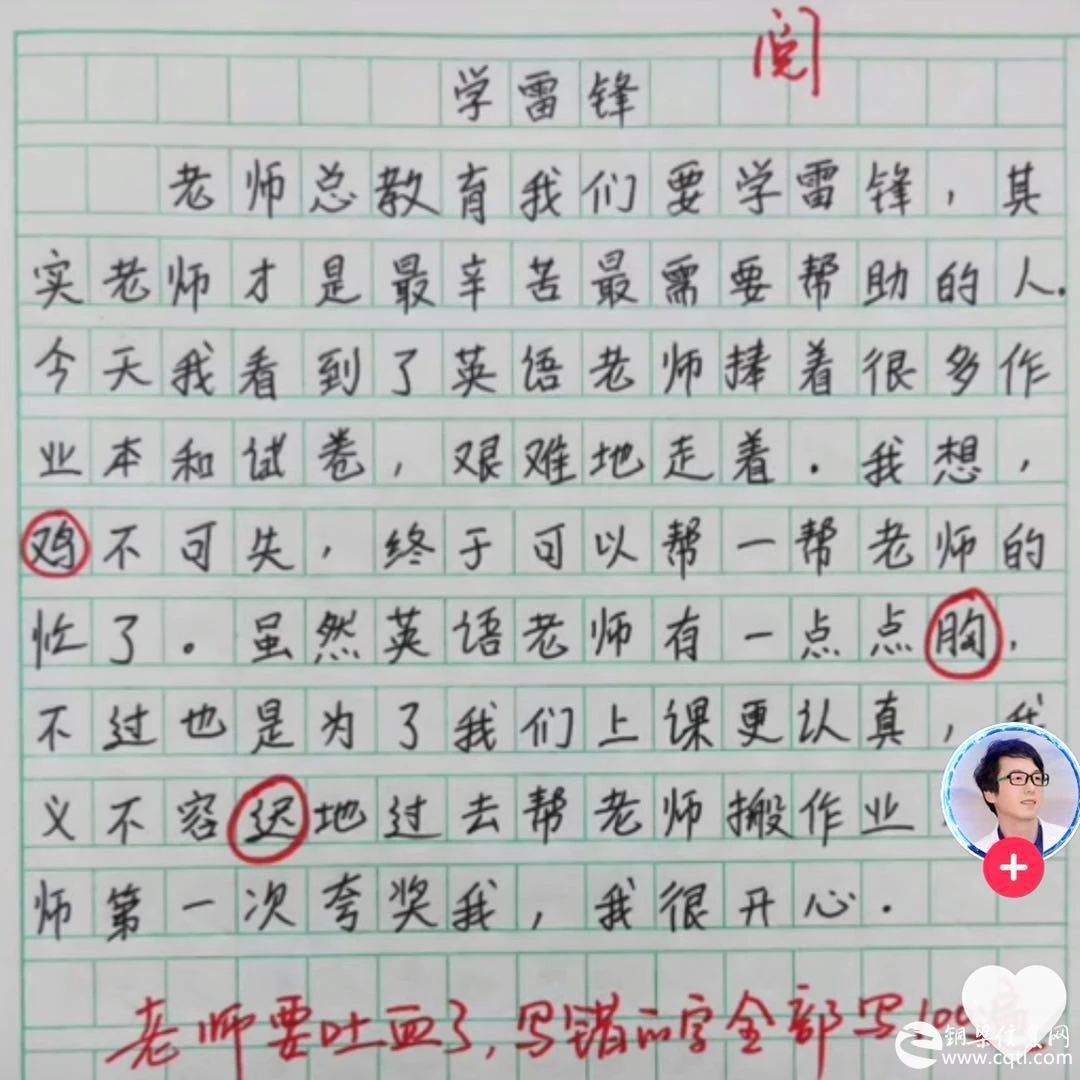 阅
学雷锋
老师总教育我们要学雷锋，其
实老师才是最辛苦最需要帮助的人.
今天我看到了英语老师捧着很多作
业本和试卷，艰难地走着.我想，
鸡不可失，终于可以帮一帮老师的
忙了。虽然英语老师有一点点胸，
不过也是为了我们上课更认真，我
义不容迟地过去帮老师搬作业
师第一次夸奖我，我很开心.
老师要吐血了,写错的字全部写100遍
铜梁信息网
www.cqtl.com